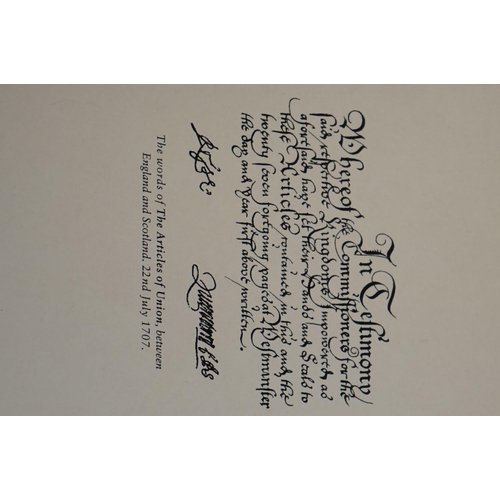 In Testimony
Whereof the Commissioners for the
said respective Kingdoms Impowered as
aforesaid have set their Hands and Seals to
these Articles contained in this and the
twenty seven foregoing pages at Westminster
the day and Year first above written.
Queensberry
The words of The Articles of Union, between
England and Scotland. 22nd July 1707.